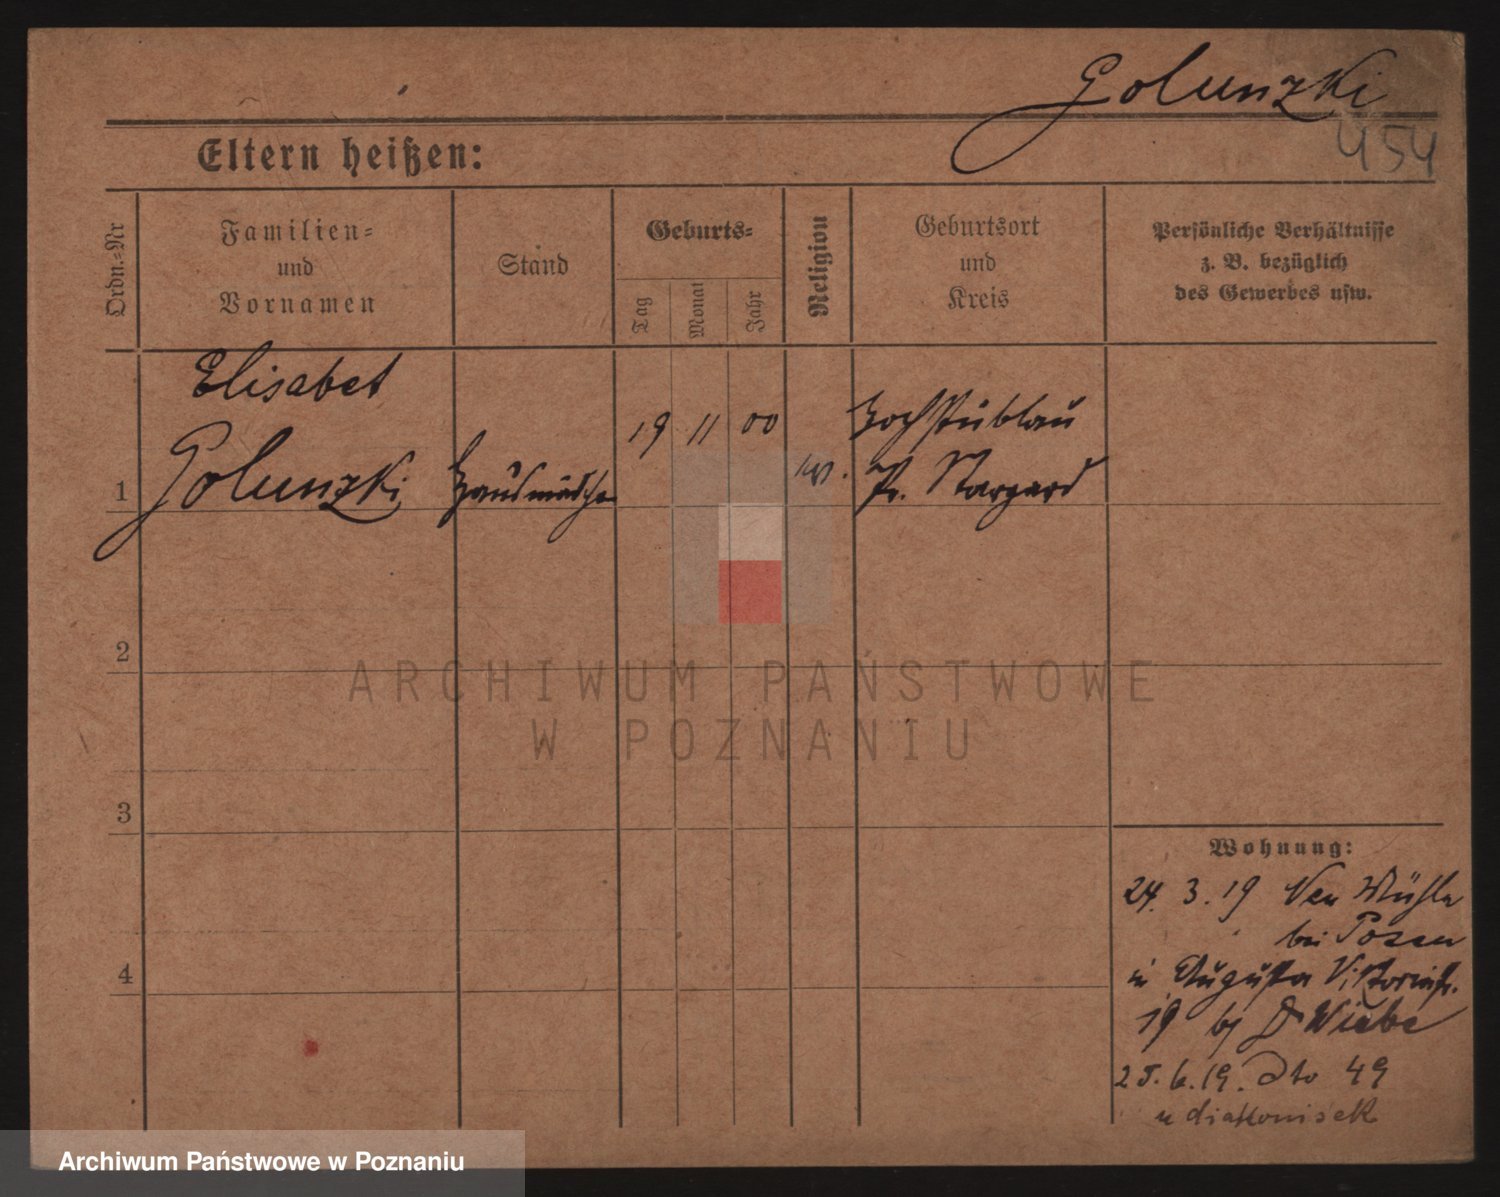 Golunzki
454
Eltern heißen:
Ordn.-Nr
Familien-
und
Vornamen
Stand
Geburts-
Tag
Monat
Jahr
Religion
Geburtsort
und
Kreis
Persönliche Verhältnisse
z. B. bezüglich
des Gewerbes usw.
Elisabet
Golunzki
1
Hausmädchen
19 11 00
Hochstüblau
Pr. Stargard
2
3
4
Wohnung:
24. 3. 19 Neu Mühle
bei Posen
in Augusta Viktoriastr.
19 bei Dr Wiebe
25. 6. 19. dto 49
ARCHIWUM PAŃSTWOWE
W POZNANIU
Archiwum Państwowe w Poznaniu